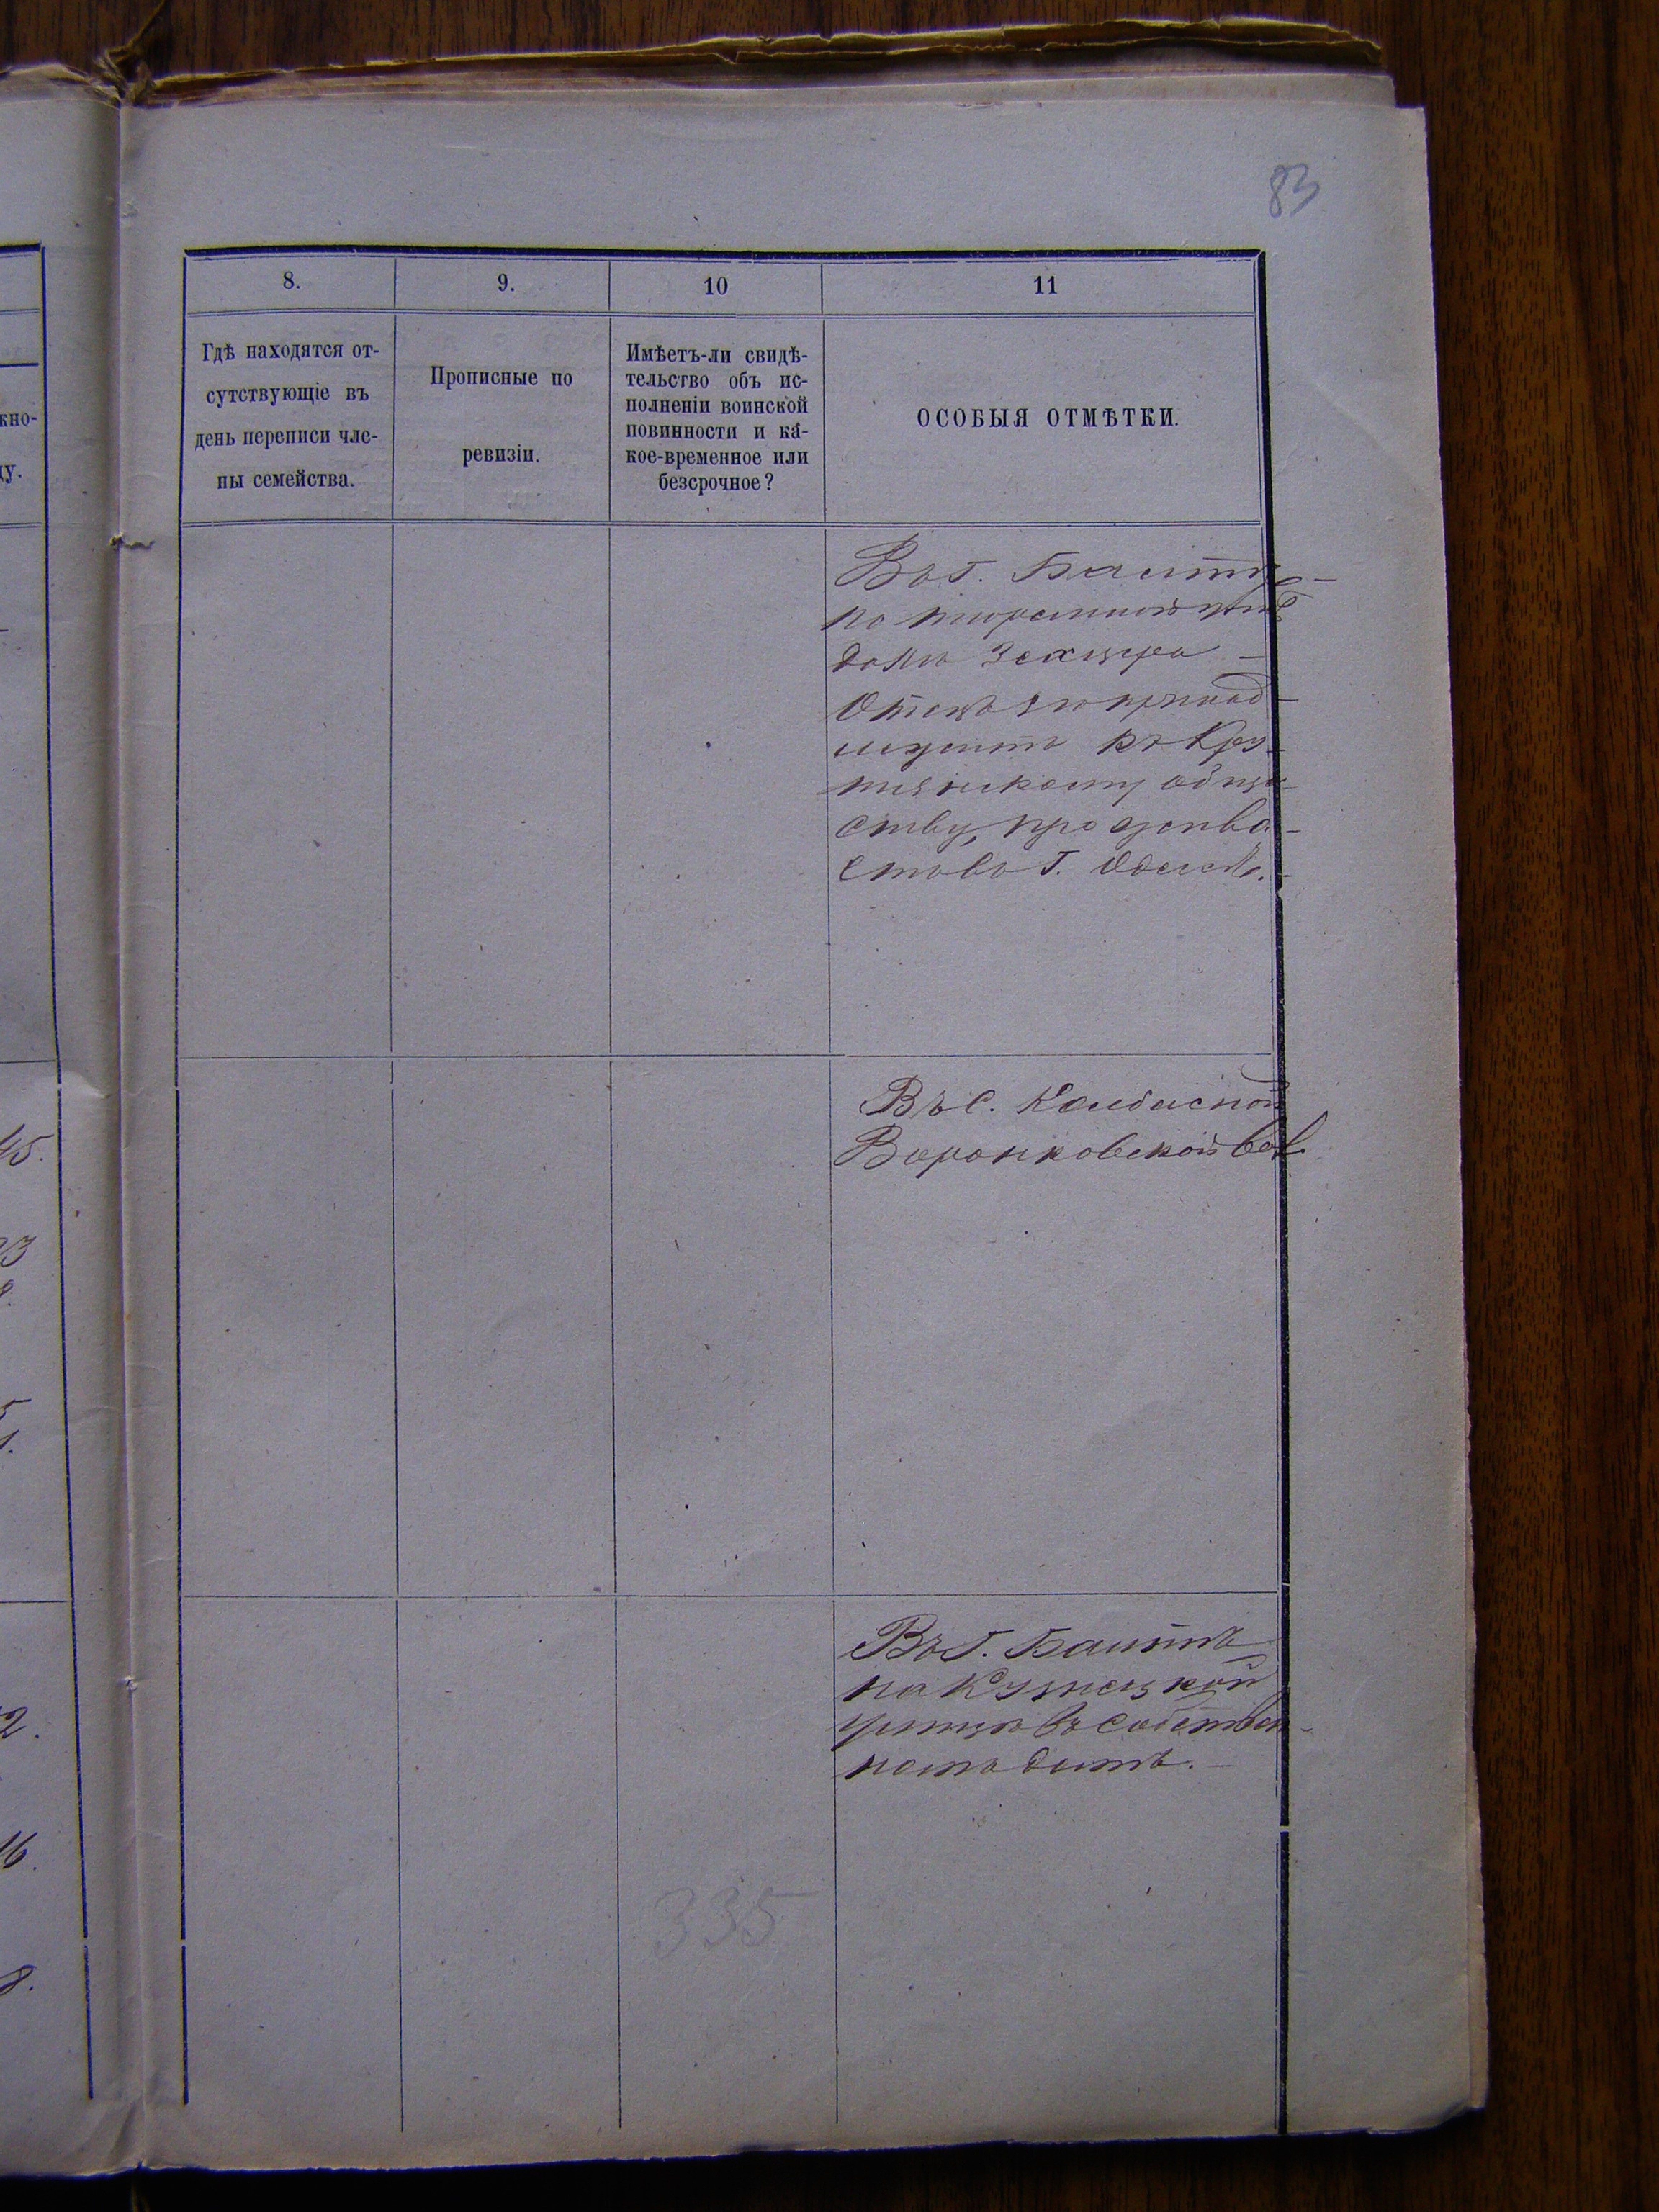 83
8.
9.
10
11
Гдѣ находятся от-
сутствующіе въ
день переписи чле-
ны семейства.
Прописные по
ревизіи.
Имѣетъ-ли свидѣ-
тельство объ ис-
полненіи воинской
повинности и ка-
кое-временное или
безсрочное?
ОСОБЫЯ ОТМѢТКИ.
Въ г. Балтѣ
по тюремной
домъ
Отецъ его принад-
лежитъ къ Кру-
тянскому обще-
ству,
въ г. Одессѣ.
Въ с. Колбасной
Воронковской вол.
Въ г. Балтѣ
на Кузнецкой
улицѣ въ собствен-
номъ домѣ.
335
кно-
ду.
45.
23
5
1.
2.
16.
8.